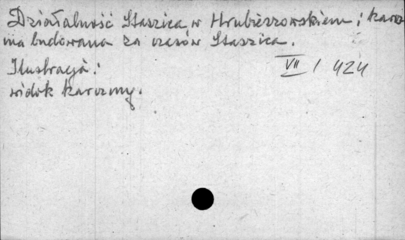 Działalność Staszica w Hrubieszowskiem; karcz
ma budowana za czasów Staszica.
Ilustracja:
VII / 424
widok karczmy.